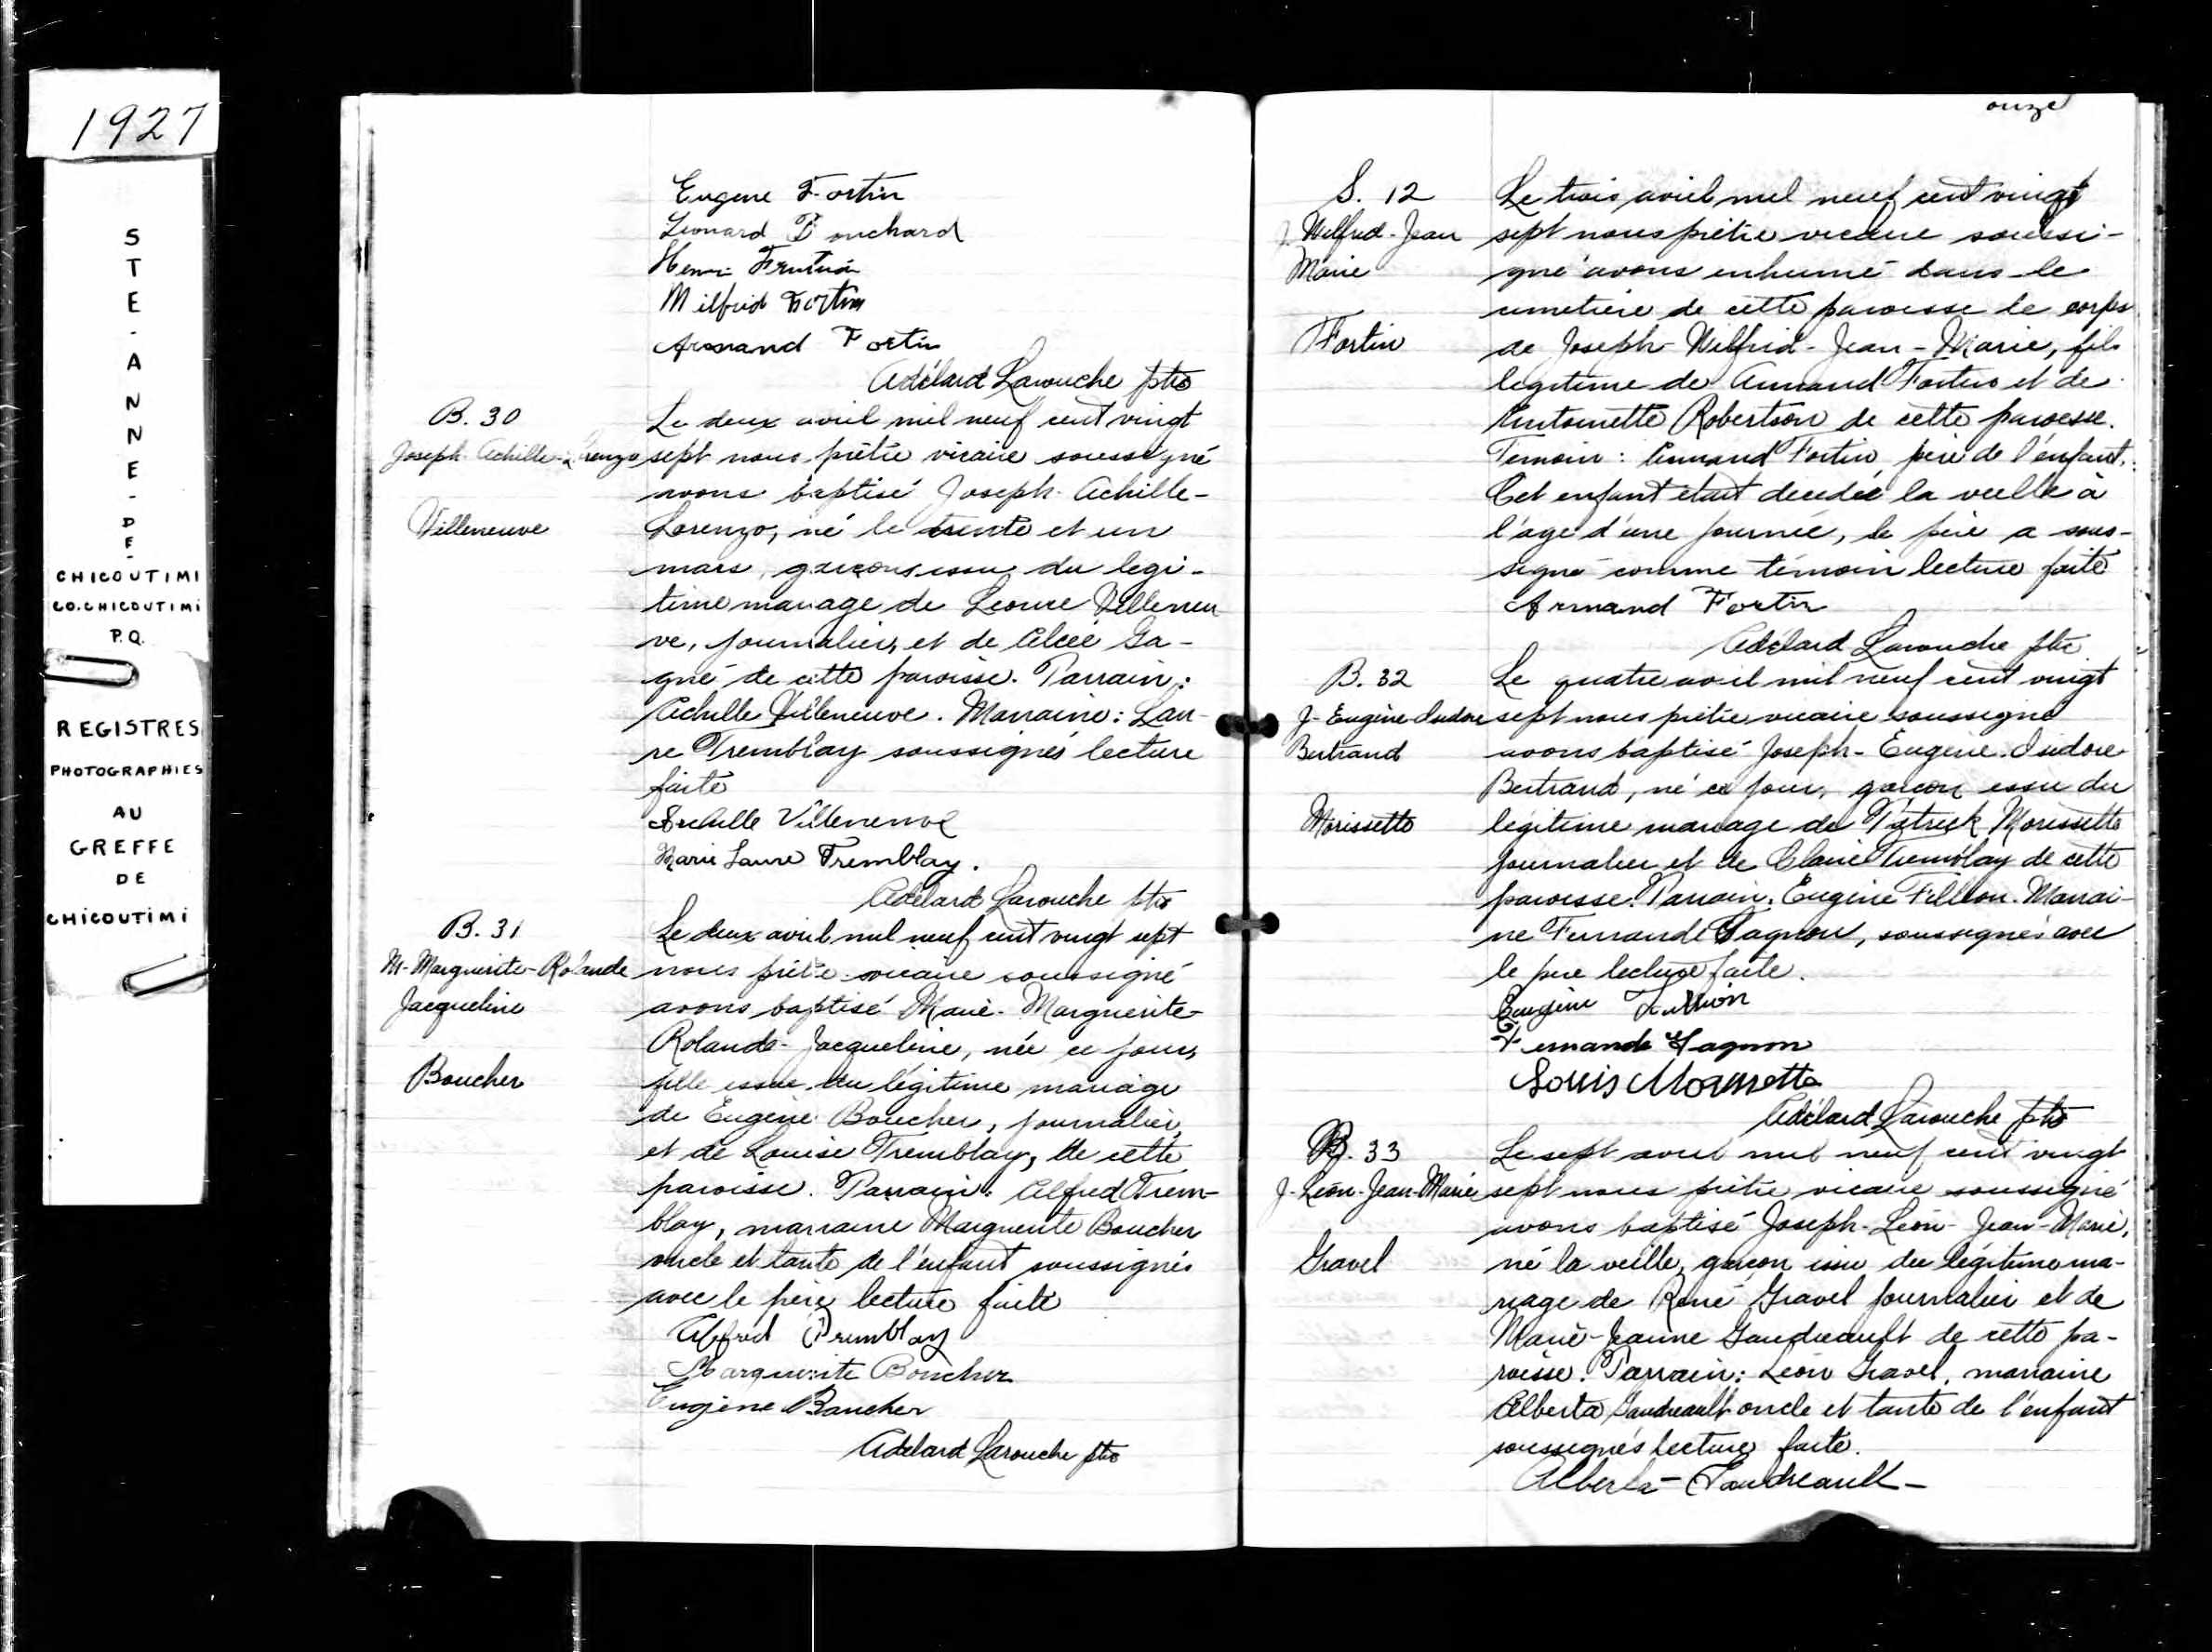 1927
STE-ANNE-DE-
CHICOUTIMI
CO. CHICOUTIMI
P.Q.
REGISTRES
PHOTOGRAPHIES
AU
GREFFE
DE
CHICOUTIMI
Eugene Fortin
Leonard Bouchard
Henri
Wilfrid Fortin
Armand Fortin
Adélard Larouche ptre
B. 30
Joseph Achille-Lorenzo
Villeneuve
Le deux avril mil neuf cent vingt
sept nous prêtre vicaire soussigné
avons baptisé Joseph-Achille-
Lorenzo, né le trente et un
mars, garçon issu du légi-
time mariage de Leonce Villeneu
ve, journalier, et de Alice Ga-
gné de cette paroisse. Parrain:
Achille Villeneuve. Marraine: Lau-
re Tremblay soussignés lecture
faite
Achille Villeneuve
Marie Laure Tremblay.
Adélard Larouche ptre
B. 31
M-Marguerite-Rolande
Jacqueline
Boucher
Le deux avril mil neuf cent vingt sept
nous prêtre vicaire soussigné
avons baptisé Marie-Marguerite-
Rolande-Jacqueline, née ce jour,
fille issue du légitime mariage
de Eugène Boucher, journalier,
et de Louise Tremblay, de cette
paroisse. Parrain: Alfred Trem-
blay, marraine Marguerite Boucher
oncle et tante de l'enfant soussignés
avec le père lecture faite
Alfred Tremblay
Marguerite Boucher
Eugène Boucher
Adélard Larouche ptre
onze
S. 12
J. Wilfrid-Jean
Marie
Fortin
Le trois avril mil neuf cent vingt
sept nous prêtre vicaire soussi-
gné avons inhumé dans le
cimetière de cette paroisse le corps
de Joseph-Wilfrid-Jean-Marie, fils
légitime de Armand Fortin et de
Antoinette Robertson de cette paroisse.
Témoin: Armand Fortin, père de l'enfant.
Cet enfant était décédé la veille à
l'âge d'une journée, le père a sous-
signé comme témoin lecture faite
Armand Fortin
Adélard Larouche ptre
B. 32
J-Eugène-Isidore
Bertrand
Morissette
Le quatre avril mil neuf cent vingt
sept nous prêtre vicaire soussigné
avons baptisé Joseph-Eugène-Isidore
Bertrand, né ce jour, garçon issu du
légitime mariage de Patrick Morissette
journalier et de Claire Tremblay de cette
paroisse. Parrain: Eugène Fillion. Marrai-
ne Fernande Gagnon, soussignés avec
le père lecture faite.
Eugène Fillion
Fernande Gagnon
Louis Morissette
Adélard Larouche ptre
B. 33
J-Léon-Jean-Marie
Gravel
Le sept avril mil neuf cent vingt
sept nous prêtre vicaire soussigné
avons baptisé Joseph-Léon-Jean-Marie,
né la veille, garçon issu du légitime ma-
riage de René Gravel journalier et de
Marie-Jeanne Gaudreault de cette pa-
roisse. Parrain: Léon Gravel, marraine
Alberta Gaudreault oncle et tante de l'enfant
soussignés lecture faite.
Alberta-Gaudreault-